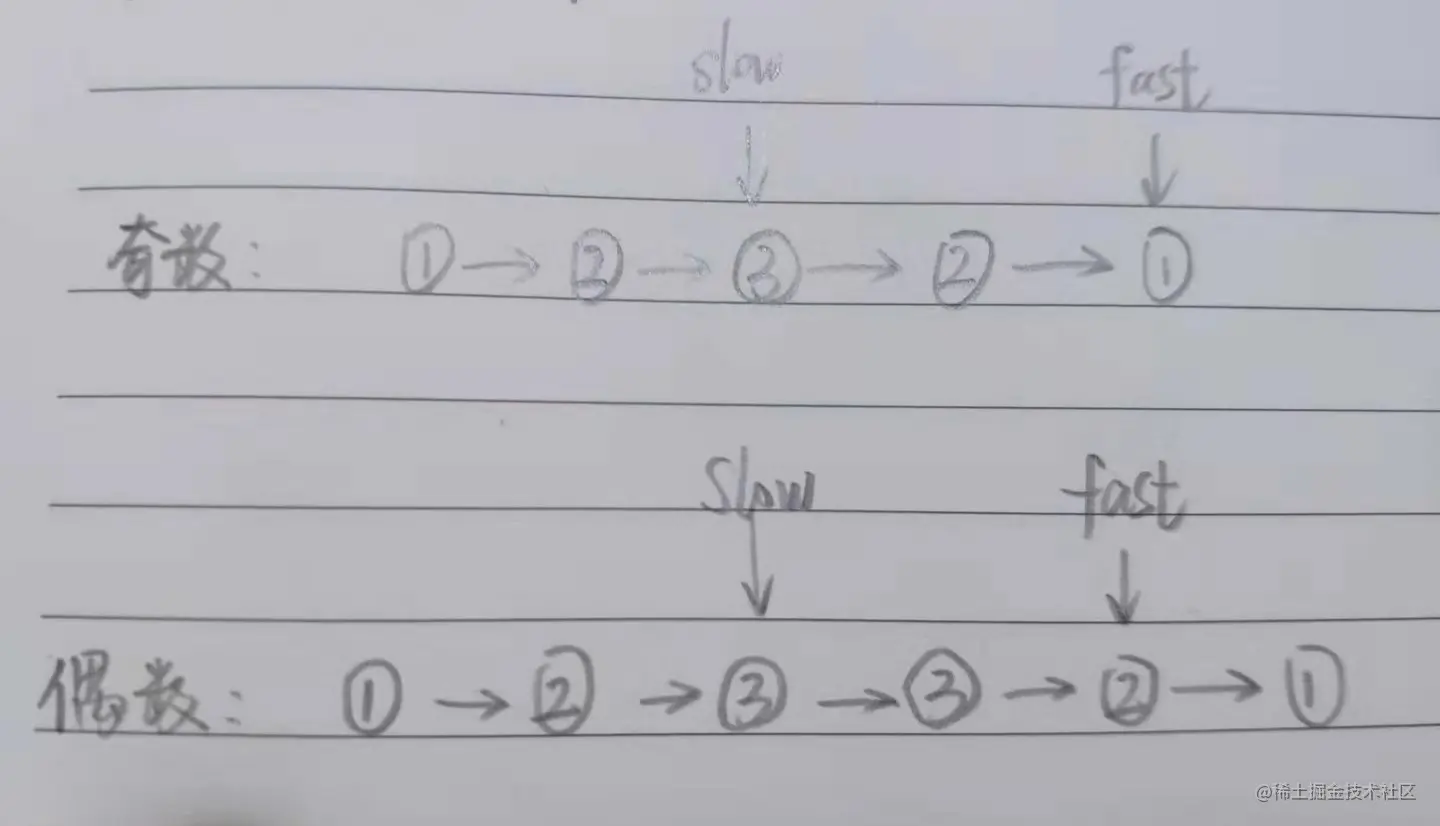 slow fast
奇数: ① → ② → ③ → ② → ①
slow fast
偶数: ① → ② → ③ → ③ → ② → ①
@稀土掘金技术社区